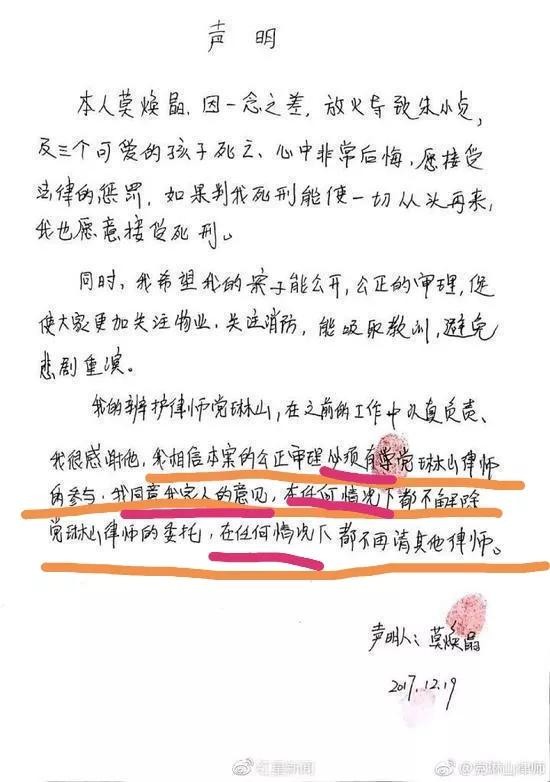 声明
本人莫焕晶,因一念之差,放火导致朱小贞,
及三个可爱的孩子死亡、心中非常后悔,愿接受
法律的惩罚,如果判我死刑能使一切从头再来,
我也愿意接受死刑。
同时,我希望我的案子能公开,公正的审理,促
使大家更加关注物业,关注消防,能吸取教训,避免
悲剧重演。
我的辩护律师党琳山,在之前的工作中认真负责、
我很感谢他,我相信本案的公正审理必须有党琳山律师
的参与,我同意我家人的意见,在任何情况下都不解除
党琳山律师的委托,在任何情况下都不再请其他律师。
声明人:莫焕晶
2017.12.19
红星新闻
@党琳山律师